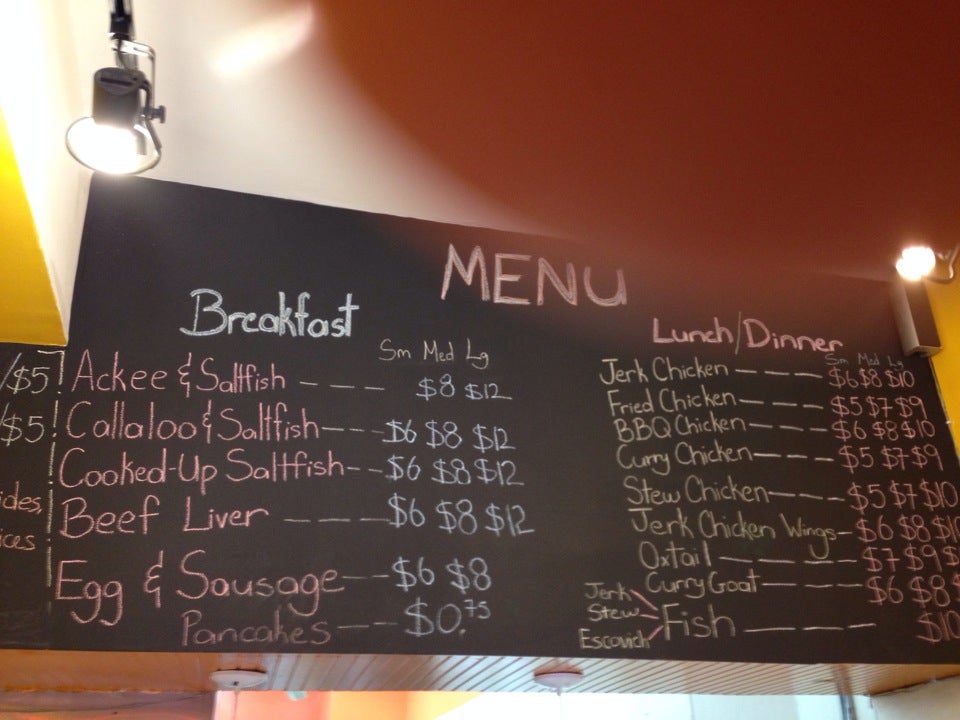 MENU
Breakfast
Sm Med Lg
Ackee & Saltfish --- $8 $12
Callaloo & Saltfish --- $6 $8 $12
Cooked-Up Saltfish -- $6 $8 $12
Beef Liver --- $6 $8 $12
Egg & Sausage --- $6 $8
Pancakes --- $0.75
/$5
/$5
Lunch/Dinner
Sm Med Lg
Jerk Chicken --- $6 $8 $10
Fried Chicken --- $5 $7 $9
BBQ Chicken --- $6 $8 $10
Curry Chicken --- $5 $7 $9
Stew Chicken --- $5 $7 $10
Jerk Chicken Wings - $6 $8 $10
Oxtail --- $7 $9 $
Curry Goat --- $6 $8 $
Jerk
Stew
Escovich
Fish ---- $10